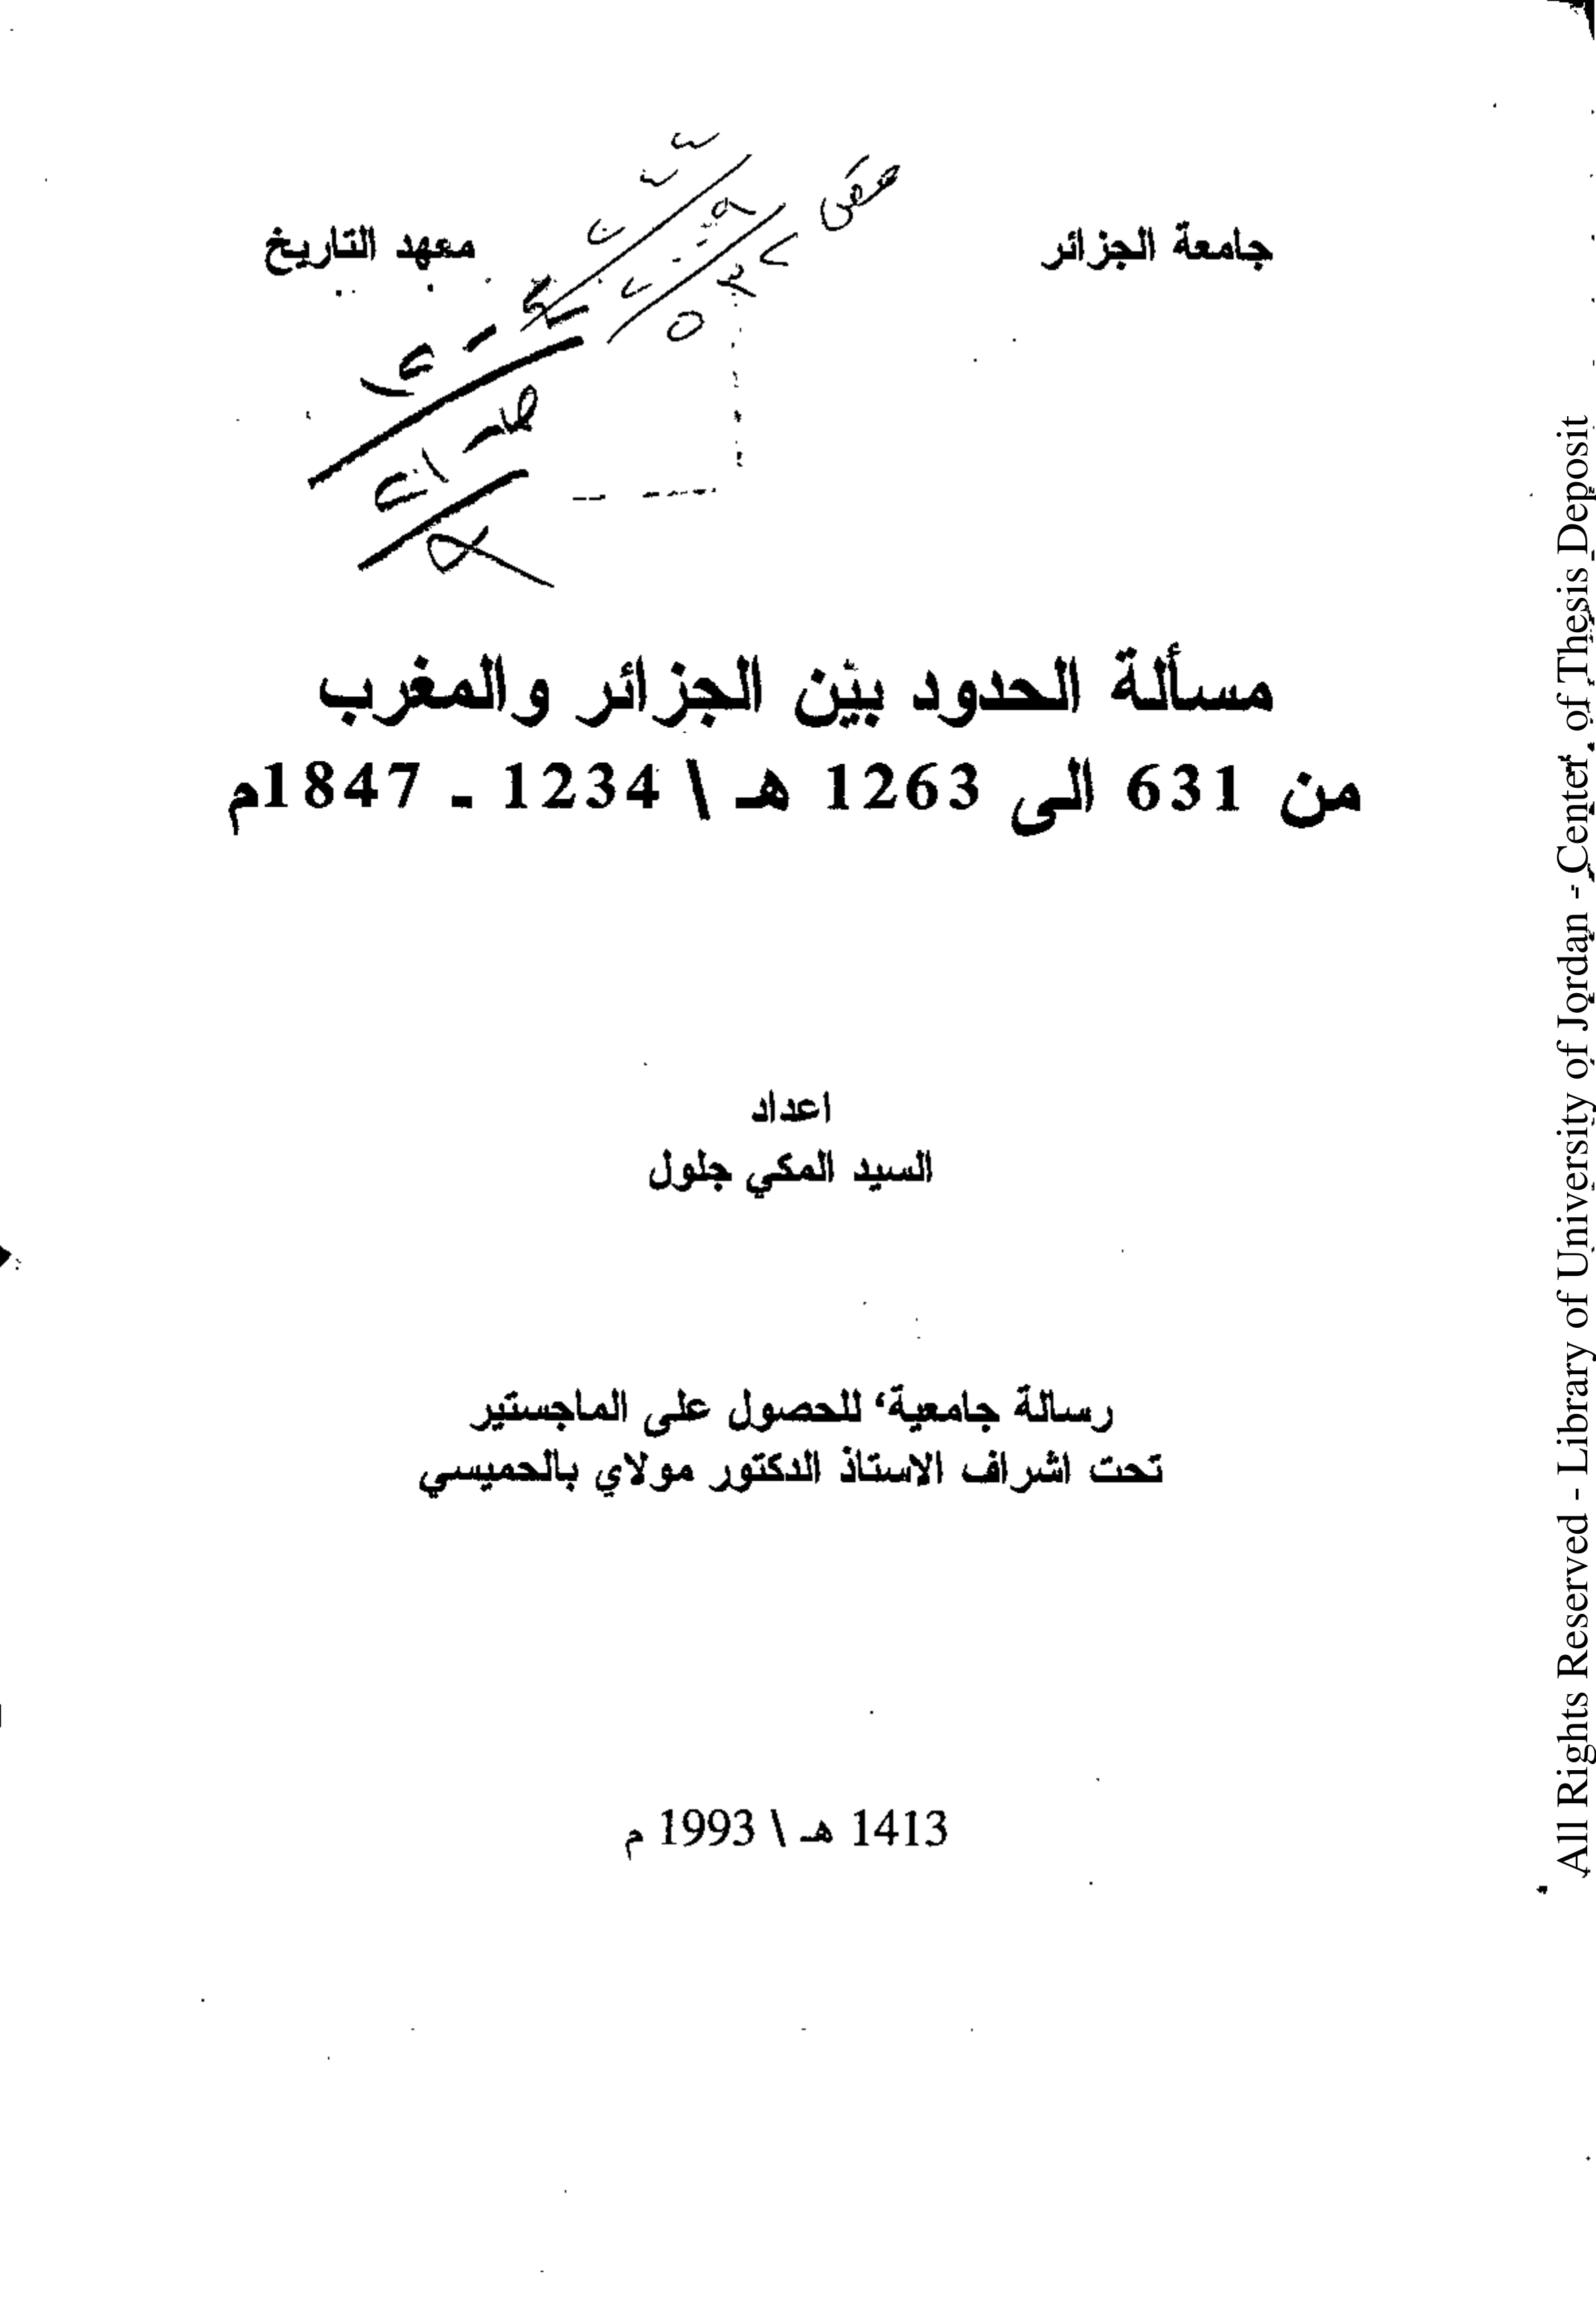 جامعة الجزائر
معهد التاريخ
مسألة الحدود بين الجزائر والمغرب
من 631 الى 1263 هـ \ 1234 ـ 1847م
اعداد
السيد المكي جلول
رسالة جامعية، للحصول على الماجستير
تحت اشراف الاستاذ الدكتور مولاي بالحميسي
1413 هـ \ 1993 م
All Rights Reserved - Library of University of Jordan - Center of Thesis Deposit